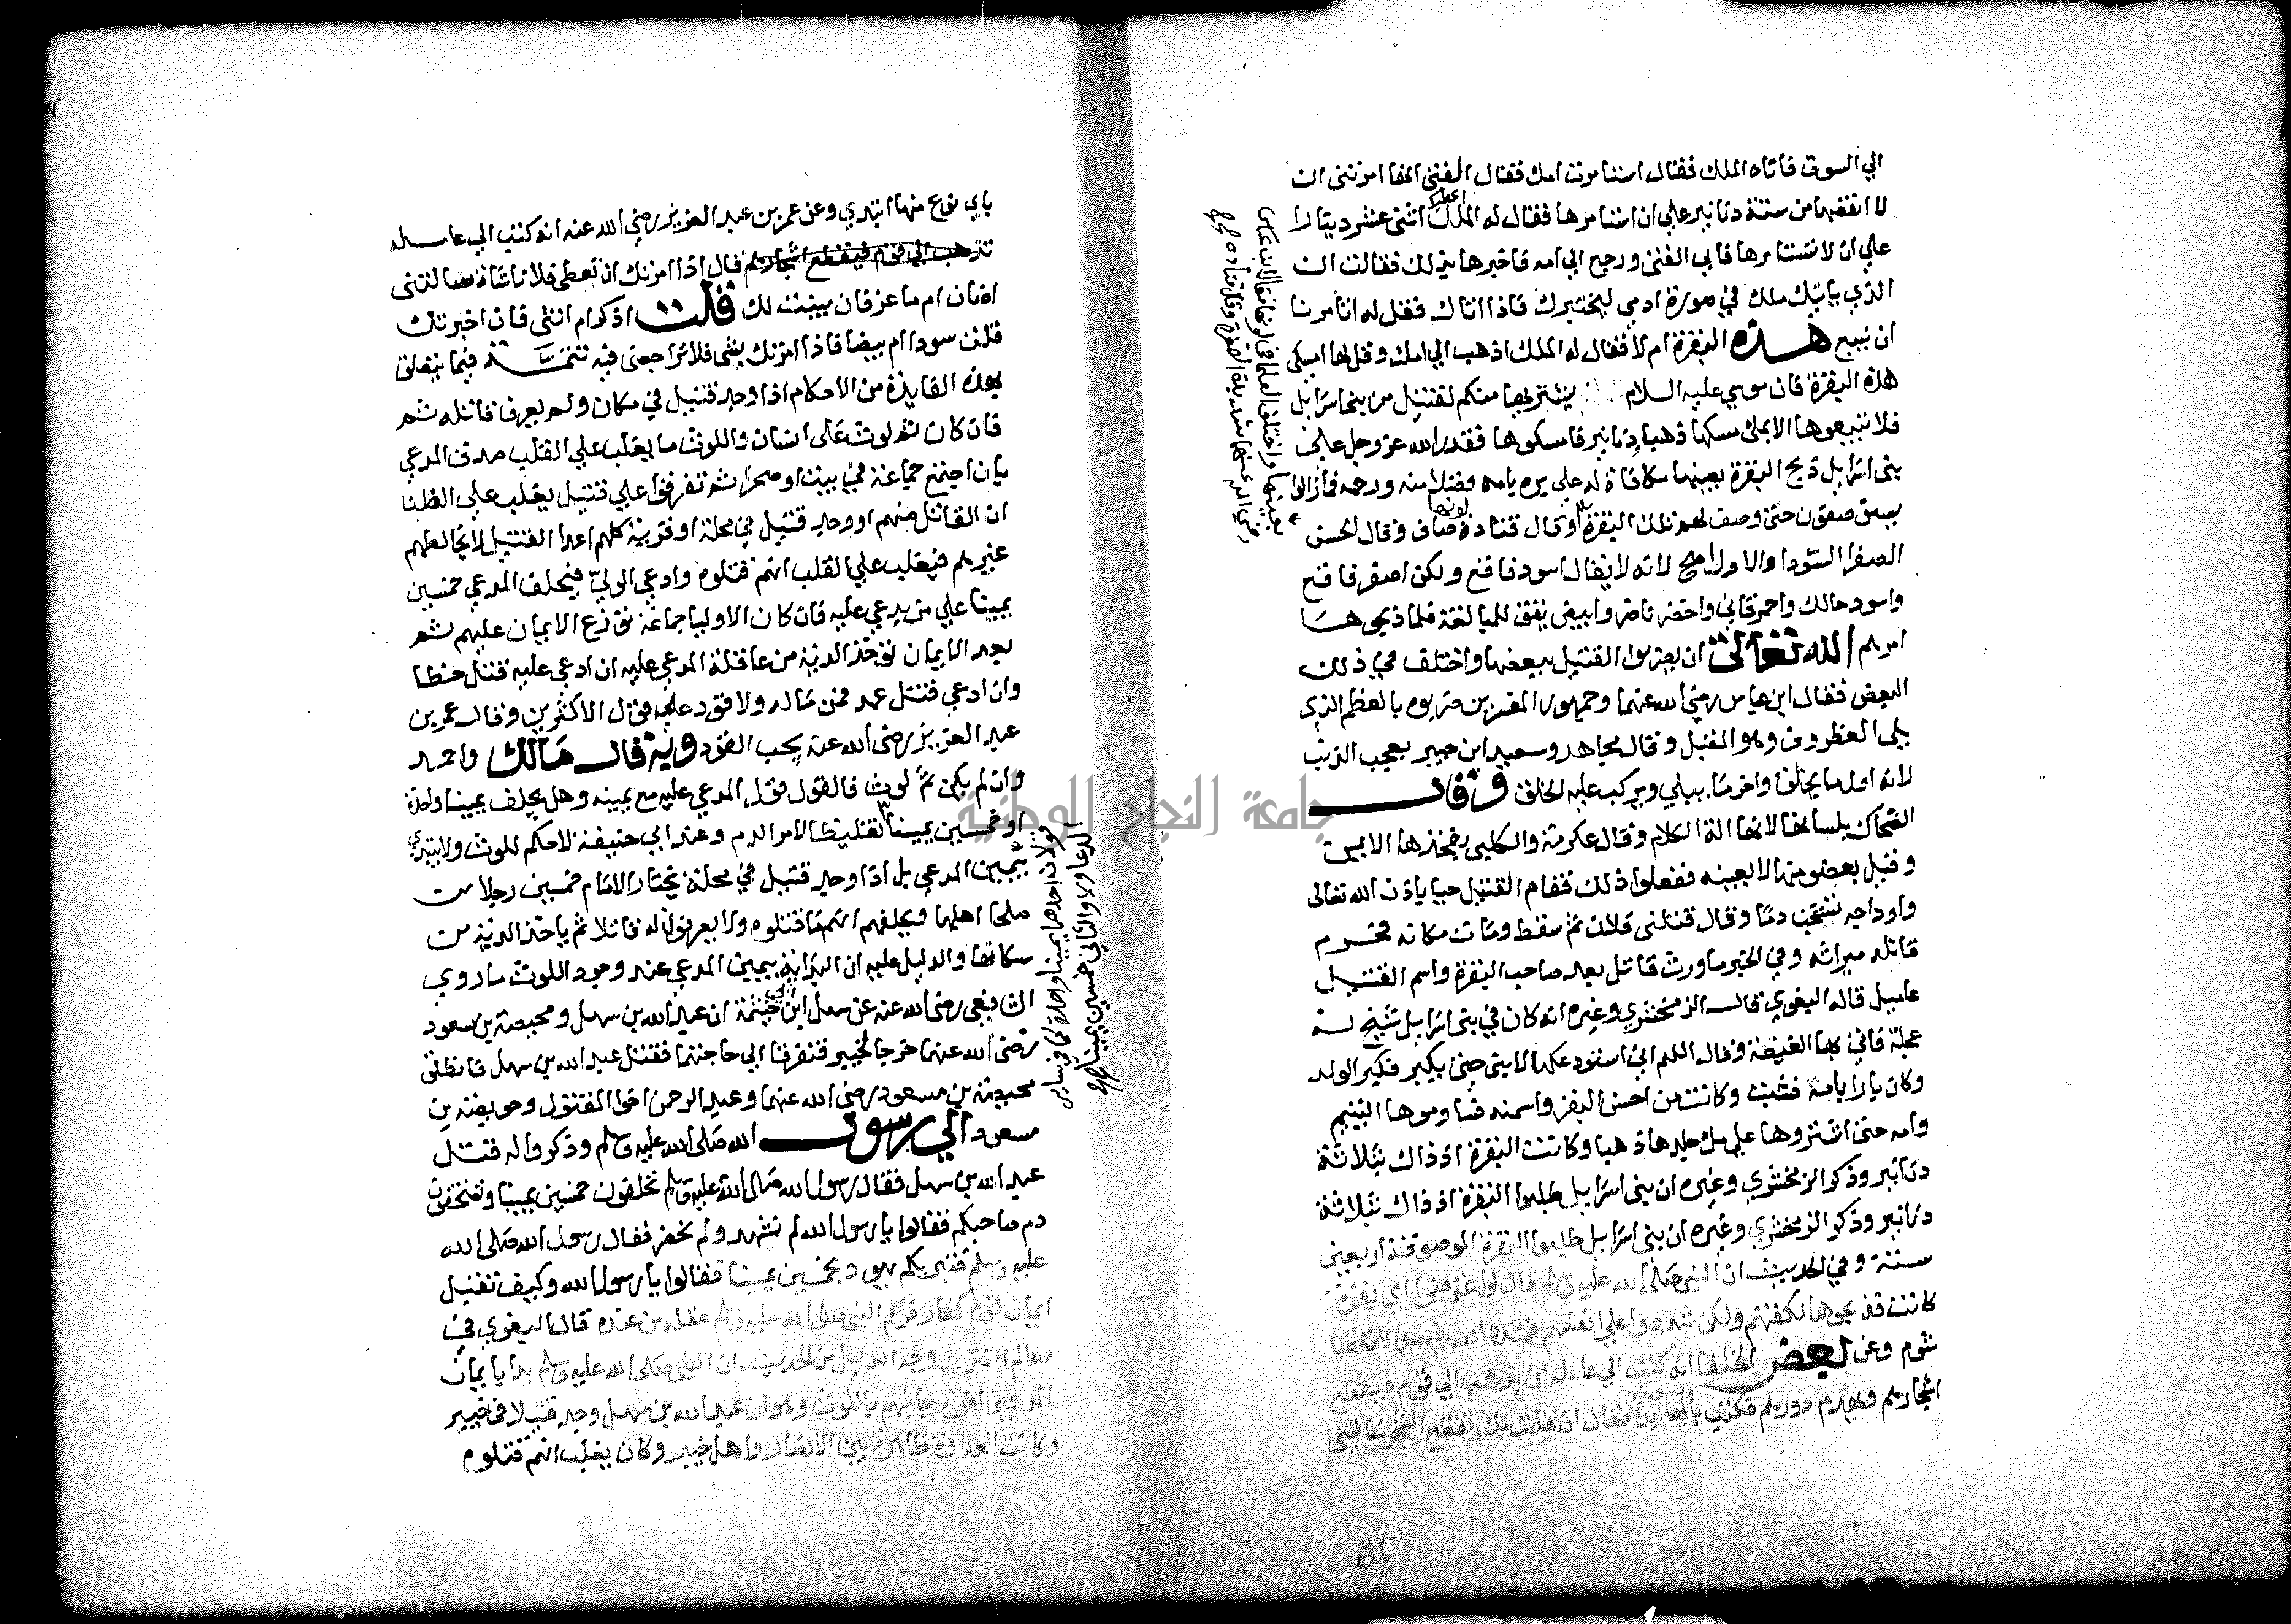 الي السوق فاتاه الملك فقال استامرت امك فقال الفتى انها امرتنى ان
لا انقصها من ستة دنانير علي ان استامرها فقال له الملك اعطيك اثنى عشر دينارا
علي ان لا تستامرها فابي الفتى ورجع الي امه فاخبرها بذلك فقالت ان
الذي ياتيك ملك في صورة ادمي ليختبرك فاذا اتاك فقل له اتامرنا
ان نبيع هذه البقرة ام لا فقال له الملك اذهب الي امك وقل لها امسكي
هذه البقرة فان موسي عليه السلام يشتريها منكم لقتيل من بني اسرايل
فلا تبيعوها الا بملئ مسكها ذهبا دنانير فامسكوها فقدر الله عز وجل علي
بني اسرايل ذبح البقرة بعينها مكافاة له علي بره بامه وفضلا منه ورحمه فمازالوا
يستوصفون حتى وصف لهم تلك البقرة وقال قتادة صاف وقال الحسن
بعينها واختلف العلما في لونها فقال ابن عباس
رضي الله عنهما شديدة الصفرة وقال قتاده صح
الصفرا السودا والاول اصح لانه لا يقال اسود فاقع ولكن اصفر فاقع
واسود حالك واحمر قاني واخضر ناضر وابيض يقق للمبالغة فلما ذبحوها
امرهم الله تعالى ان يضربوا القتيل ببعضها واختلف في ذلك
البعض فقال ابن عباس رضي الله عنهما وجمهور المفسرين ضربوه بالعظم الذي
يلي الغظروف وهو المقتل وقال مجاهد وسعيد ابن جبير بعجب الذنب
لانه اول ما يخلق واخر ما يبلي ويركب عليه الخلق وقال
الضحاك بلسانها لانها الة الكلام وقال عكرمة والكلبي بفخذها الايمن
وقيل بعضو منها لا بعينه ففعلوا ذلك فقام القتيل حيا باذن الله تعالى
واوداجه تشخب دما وقال قتلني فلان ثم سقط ومات مكانه فحرم
قاتله ميراثه وفي الخبر ما ورث قاتل بعد صاحب البقرة واسم القتيل
عاميل قاله البغوي قال الزمخشري وغيره انه كان في بني اسرايل شيخ له
عجلة فاتي بها الغيضة وقال اللهم اني استودعكها لابني حتى يكبر فكبر الولد
وكان بارا بامه فشبت وكانت من احسن البقر واسمنه فساوموها اليتيم
وامه حتى اشتروها علي ملئ جلدها ذهبا وكانت البقرة اذ ذاك بثلاثة
دنانير وذكر الزمخشري وغيره ان بني اسرايل طلبوا البقرة اذ ذاك بثلاثة
دنانير وذكر الزمخشري وغيره ان بني اسرايل طلبوا البقرة الموصوفة اربعين
سنة وفي الحديث ان النبي صلى الله عليه وسلم قال لو اعترضوا اي بقرة
كانت فذبحوها لكفتهم ولكن شددوا علي انفسهم فشدد الله عليهم والاستقصا
شوم وعن بعض الخلفا انه كتب الي عامله ان يذهب الي قوم فيقطع
اشجارهم ويهدم دورهم فكتب بايها ابدا فقال ان قلت لك بقطع الشجر سالتني
باي
باي نوع منها ابتدي وعن عمر بن عبد العزيز رضي الله عنه انه كتب الي عامله
تذهب الي قوم فيقطع اشجارهم قال اذا امرتك ان تعطي فلانا شاة سالتني
اضان ام ماعز فان بينت لك قلت اذكر ام انثى فان اخبرتك
قلت سودا ام بيضا فاذا امرتك بشي فلا تراجعني فيه تتمة فيما يتعلق
بهذه الفايدة من الاحكام اذا وجد قتيل في مكان ولم يعرف قاتله ثم
فان كان ثم لوث على انسان واللوث ما يغلب علي القلب صدق المدعي
بان اجتمع جماعة في بيت او صحرا ثم تفرقوا علي قتيل يغلب علي الظن
ان القاتل منهم او وجد قتيل في محلة او قرية كلهم اعدا القتيل لا يخالطهم
غيرهم فيغلب علي القلب انهم قتلوه وادعي الولي فيحلف المدعي خمسين
يمينا علي من يدعي عليه فان كان الاوليا جماعة توزع الايمان عليهم ثم
بعد الايمان توخذ الدية من عاقلة المدعي عليه ان ادعي عليه قتل خطا
وان ادعي قتل عمد فمن ماله ولا قود علي قول الاكثرين وقال عمر بن
عبد العزيز رضي الله عنه يجب القود وبه قال مالك واحمد
وان لم يكن ثم لوث فالقول قول المدعي عليه مع يمينه وهل يحلف يمينا واحدة
او خمسين يمينا تغليظا لامر الدم وعند ابي حنيفة لا حكم للوث ولا يبتدي
قولان احدهما يمينا واحدة كما في ساير
الدعاوي والثاني خمسين يمينا صح
بيمين المدعي بل اذا وجد قتيل في محلة يختار الامام خمسين رجلا من
صلحا اهلها ويحلفهم انهم ما قتلوه ولا يعرفوا له قاتلا ثم ياخذ الدية من
سكانها والدليل عليه ان البداية بيمين المدعي عند وجود اللوث ما روي
الشافعي رضي الله عنه عن سهل ابن ابي حيثمة ان عبد الله بن سهل ومحيصة بن مسعود
رضي الله عنهما خرجا لخيبر فتفرقا الي حاجتهما فقتل عبد الله بن سهل فانطلق
محيصة بن مسعود رضي الله عنهما وعبد الرحمن اخوا المقتول وحويصة بن
مسعود الي رسول الله صلى الله عليه وسلم وذكروا له قتل
عبد الله بن سهل فقال رسول الله صلى الله عليه وسلم تحلفون خمسين يمينا وتستحقون
دم صاحبكم فقالوا يا رسول الله لم نشهد ولم نحضر فقال رسول الله صلى الله
عليه وسلم فتبريكم يهود بخمسين يمينا فقالوا يا رسول الله وكيف تقبل
ايمان قوم كفار فزعم النبي صلى الله عليه وسلم عقله من عنده قال البغوي في
معالم التنزيل وجه الدليل من الحديث ان النبي صلى الله عليه وسلم بدا بايمان
المدعين لقوة جانبهم باللوث وهو ان عبد الله بن سهل وجد قتيلا في خيبر
وكانت العداوة ظاهرة بين الانصار واهل خيبر وكان يغلب انهم قتلوه
جامعة النجاح الوطنية